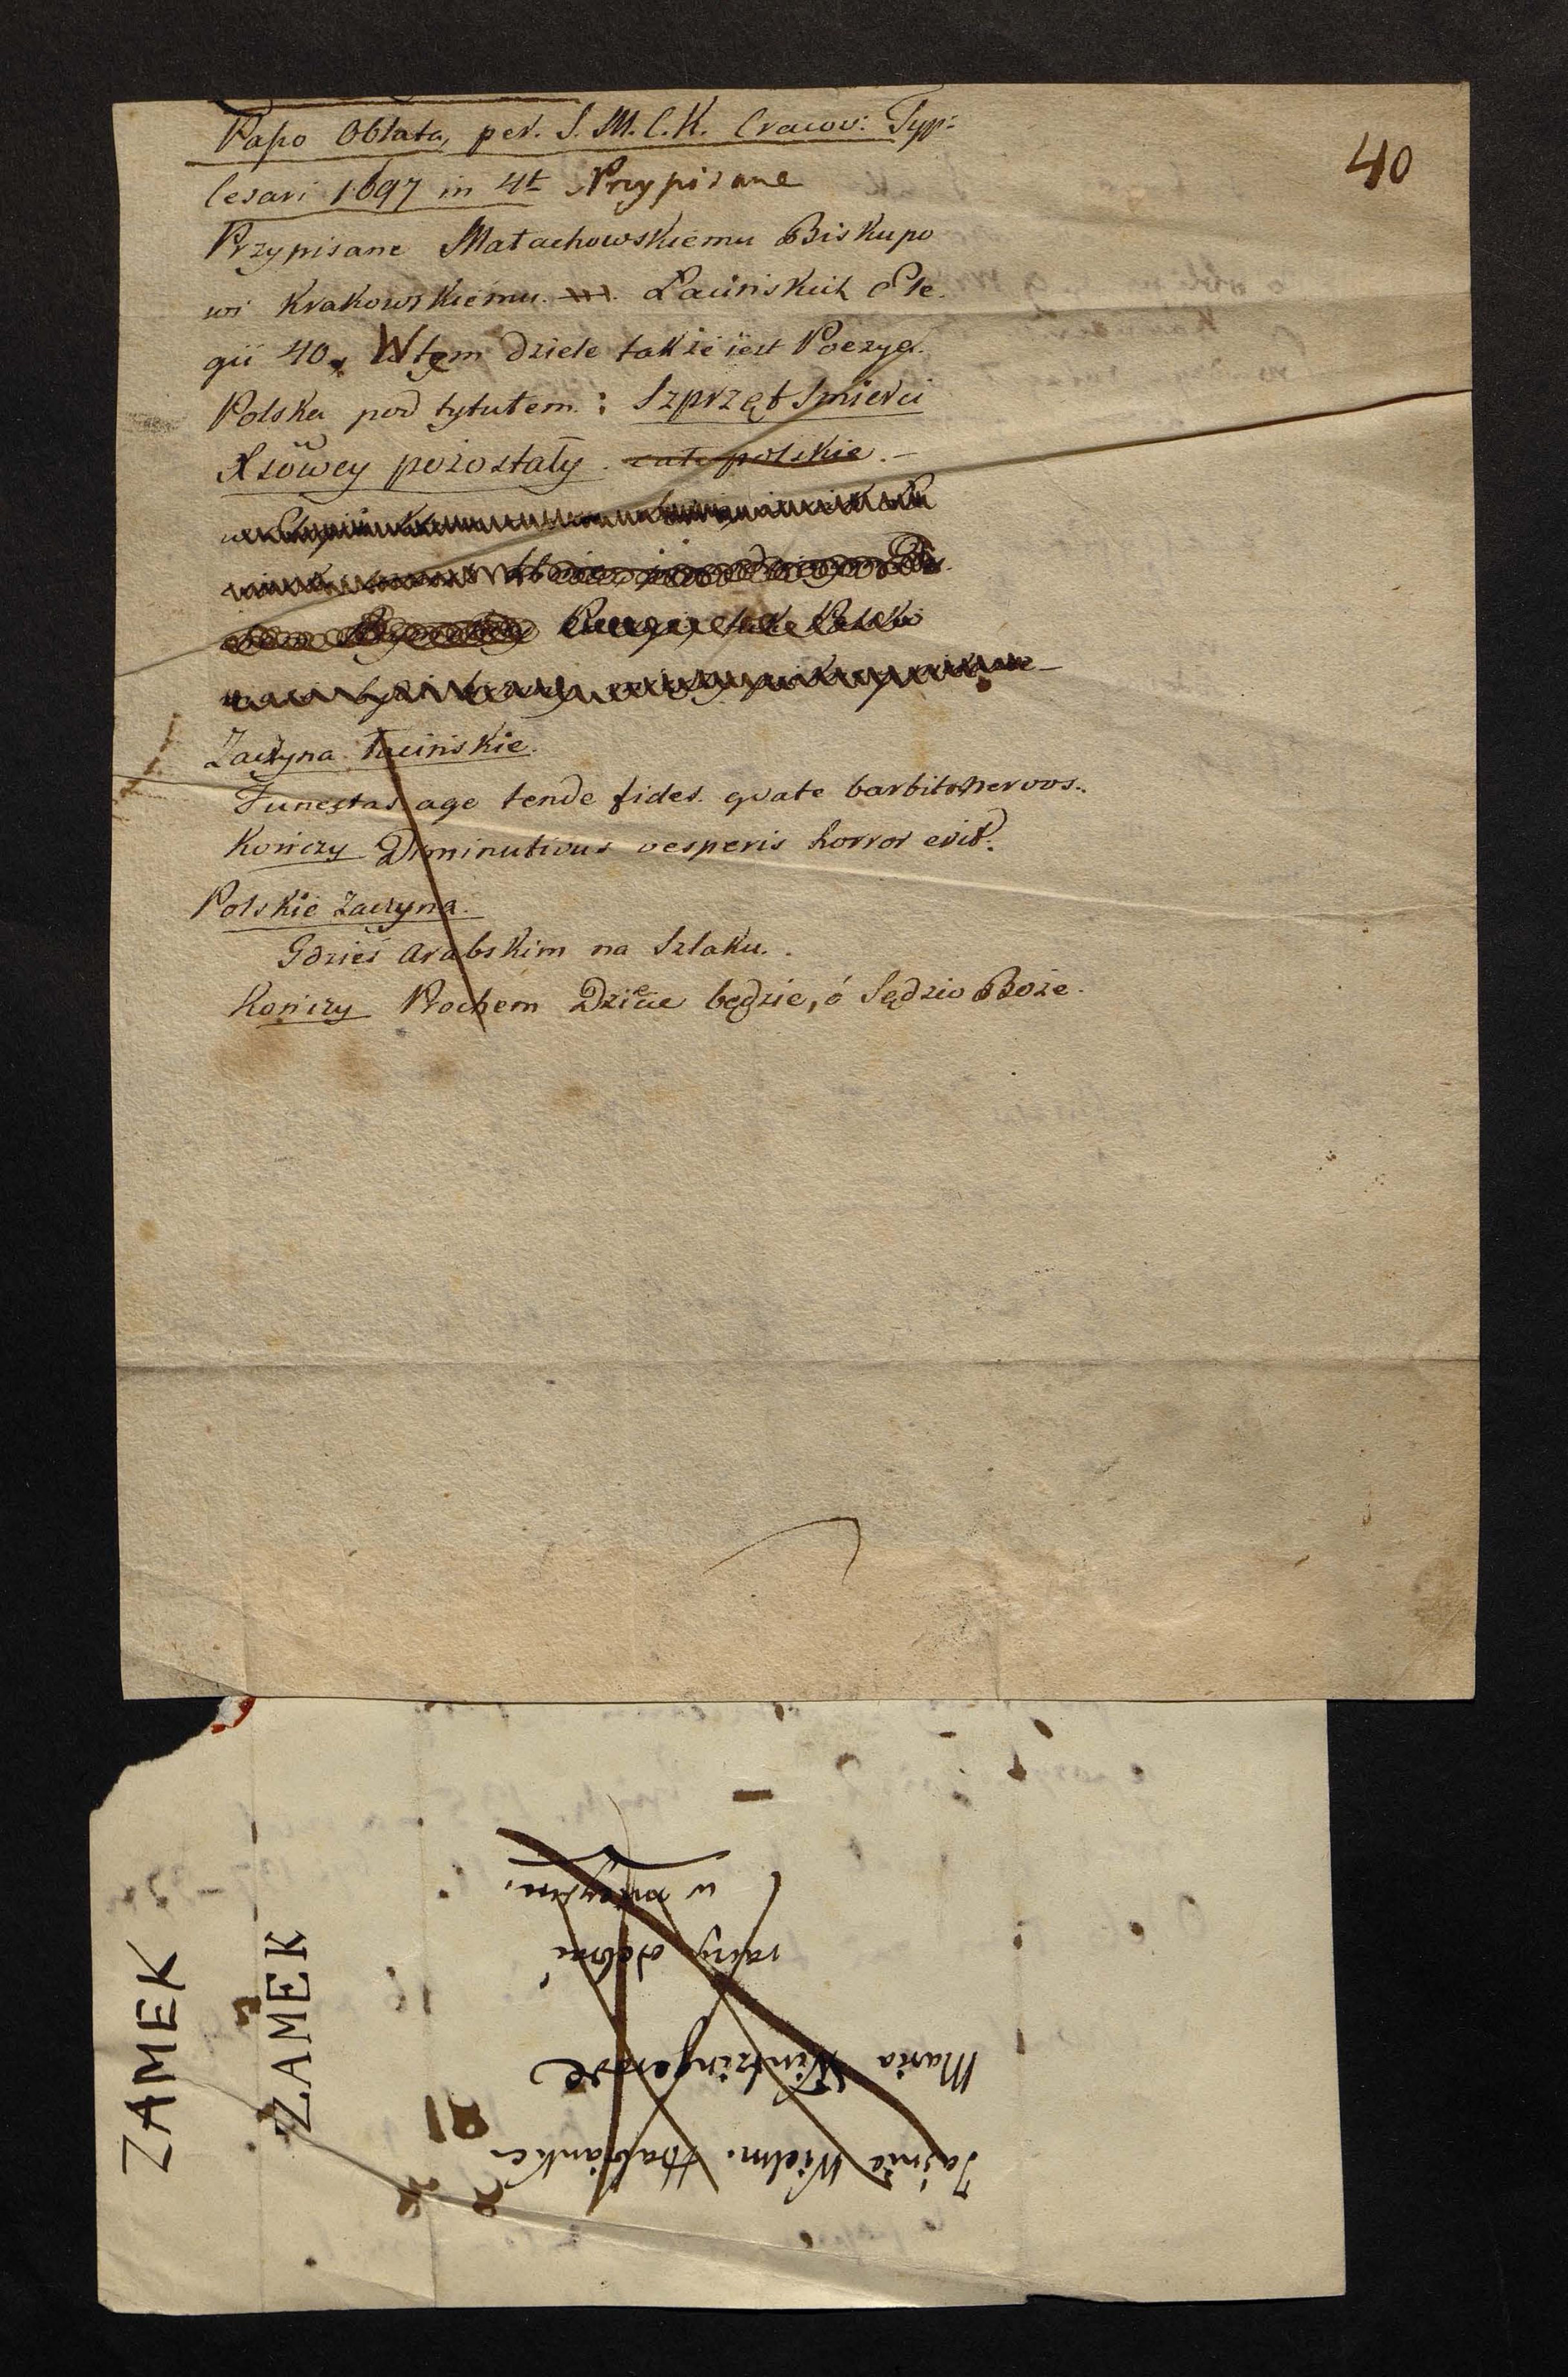 40
Papo Oblata, per. S. M. C. K. Cracov: Typ:
Cesari 1697 in 4t Przypisane
Przypisane Małachowskiemu Biskupo
wi Krakowskiemu. Łacińskich Ele.
gii 40. W tem dziele także iest Poezya
Polska pod tytułem: Szprzęt Śmierci
Xsówey pozostały. całe polskie.
Zaczyna łacińskie.
Funestas age tende fides. quate barbito nervos.
Kończy Diminutivus vesperis horror erit.
Polskie zaczyna.
Gdzieś arabskim na Szlaku.
Kończy Prochem Dziecie będzie, ó Sędzio Boże.
Jaśnie Wielm. Hrabianka
Maria Wintzingerode
raczy odebrać
w
ZAMEK
ZAMEK